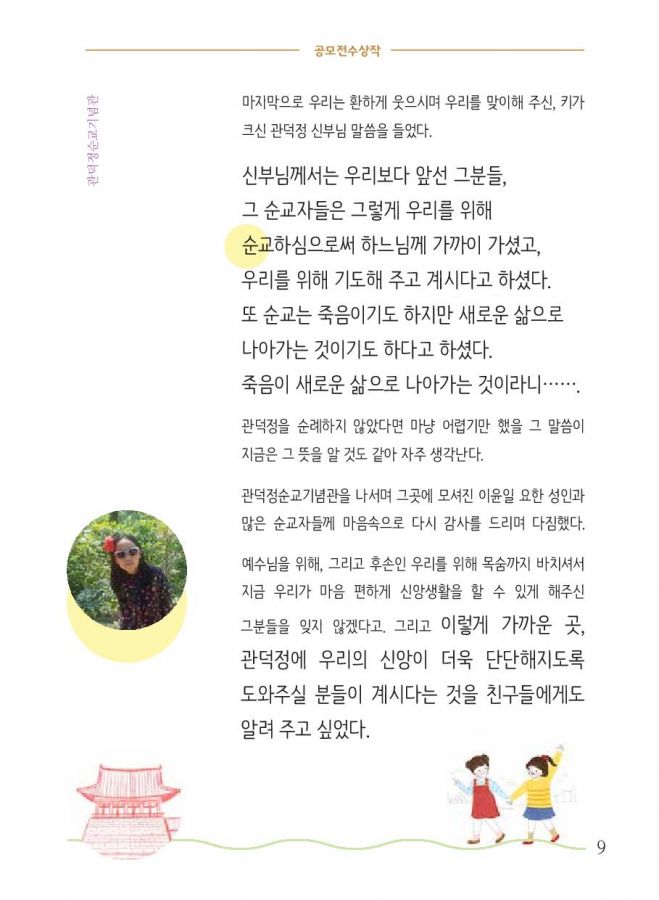 공모전수상작
관덕정순교기념관
마지막으로 우리는 환하게 웃으시며 우리를 맞이해 주신, 키가
크신 관덕정 신부님 말씀을 들었다.
신부님께서는 우리보다 앞선 그분들,
그 순교자들은 그렇게 우리를 위해
순교하심으로써 하느님께 가까이 가셨고,
우리를 위해 기도해 주고 계시다고 하셨다.
또 순교는 죽음이기도 하지만 새로운 삶으로
나아가는 것이기도 하다고 하셨다.
죽음이 새로운 삶으로 나아가는 것이라니…….
관덕정을 순례하지 않았다면 마냥 어렵기만 했을 그 말씀이
지금은 그 뜻을 알 것도 같아 자주 생각난다.
관덕정순교기념관을 나서며 그곳에 모셔진 이윤일 요한 성인과
많은 순교자들께 마음속으로 다시 감사를 드리며 다짐했다.
예수님을 위해, 그리고 후손인 우리를 위해 목숨까지 바치셔서
지금 우리가 마음 편하게 신앙생활을 할 수 있게 해주신
그분들을 잊지 않겠다고. 그리고 이렇게 가까운 곳,
관덕정에 우리의 신앙이 더욱 단단해지도록
도와주실 분들이 계시다는 것을 친구들에게도
알려 주고 싶었다.
9